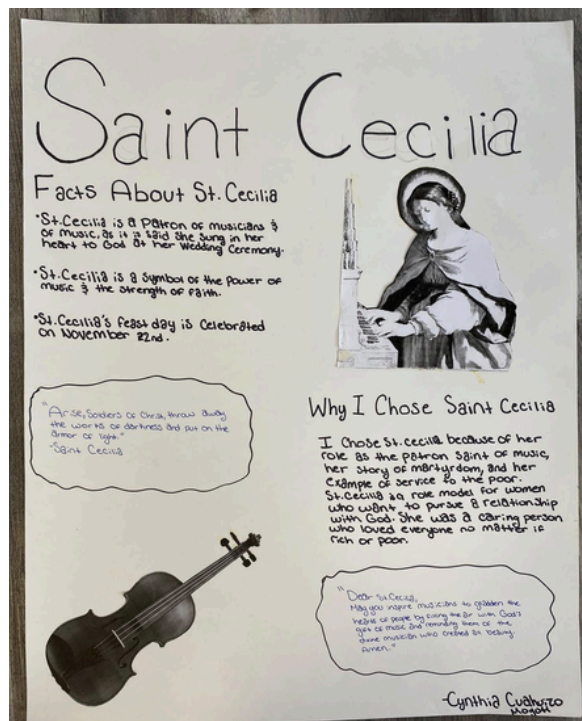 Saint Cecilia
Facts About St. Cecilia
•St. Cecilia is a Patron of musicians &
of music, as it is said she sung in her
heart to God at her wedding Ceremony.
•St. Cecilia is a symbol of the power of
music & the strength of faith.
•St. Cecilia's feast day is Celebrated
on November 22nd.
"Arise, Soldiers of Christ, throw away
the works of darkness and put on the
armor of light."
-Saint Cecilia
Why I Chose Saint Cecilia
I Chose St. Cecilia because of her
role as the patron saint of music,
her story of martyrdom, and her
example of service to the poor.
St. Cecilia is a role model for women
who want to pursue a relationship
with God. She was a caring person
who loved everyone no matter if
rich or poor.
"Dear St. Cecilia,
May you inspire musicians to gladden the
hearts of people by filling the air with God's
gift of music and reminding them of the
divine musician who created all beauty.
Amen."
-Cynthia